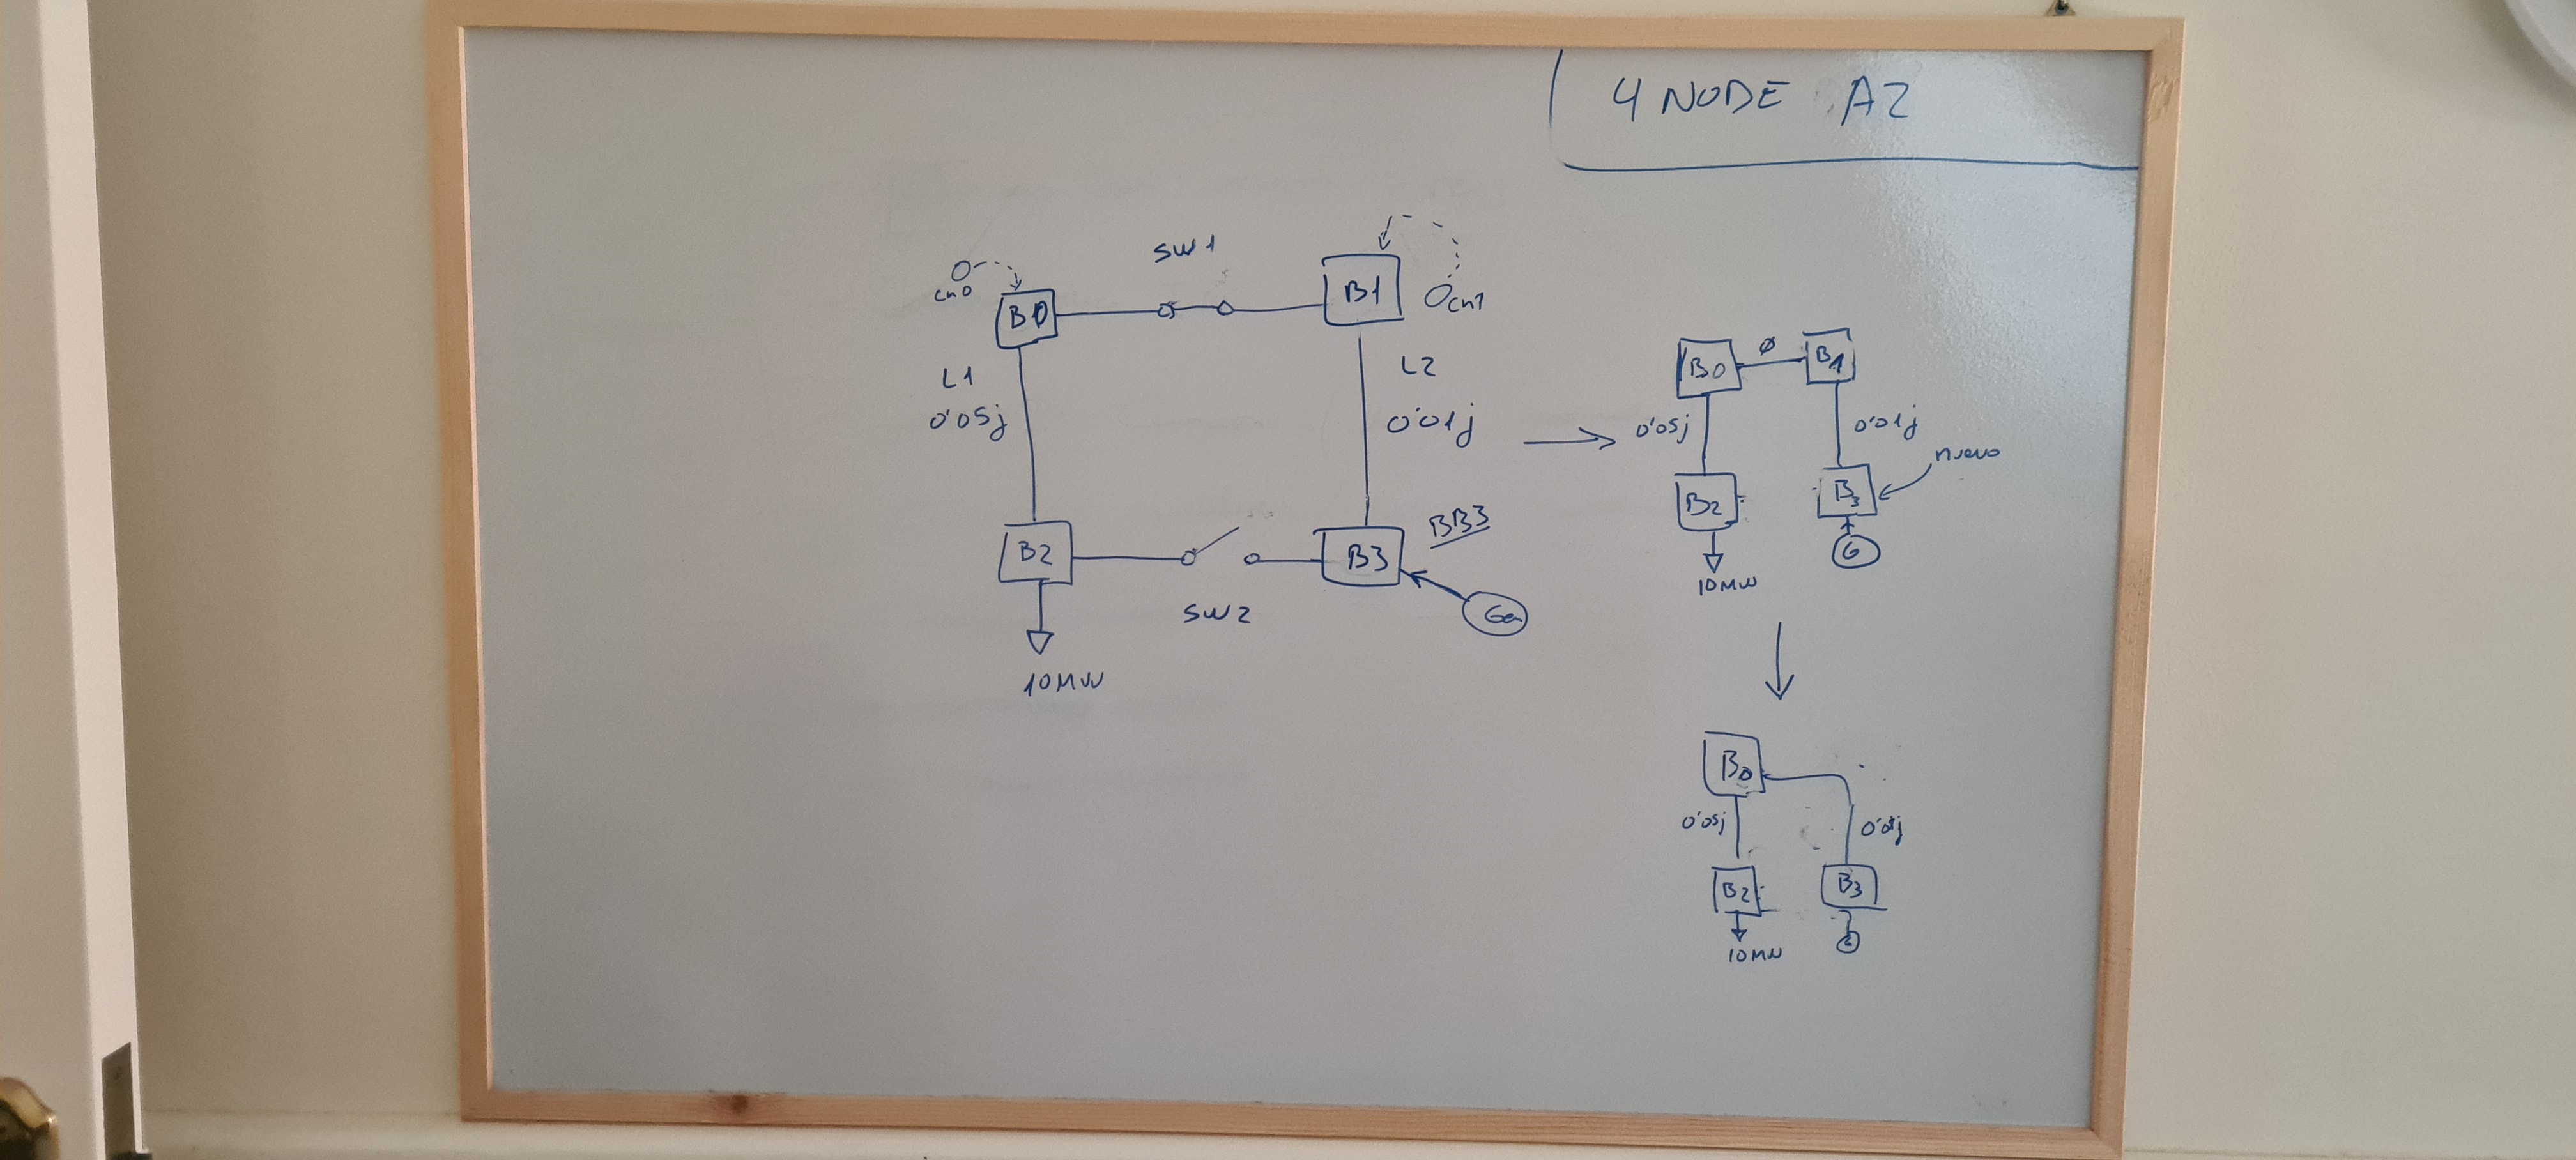 4 NODE A2
SW1
cn0
B0
B1
cn1
L1
0'05j
L2
0'01j
B2
B3
BB3
SW2
Gen
10MW
B0
ø
B1
0'05j
0'01j
nuevo
B2
B3
G
10MW
B0
0'05j
0'01j
B2
B3
10MW